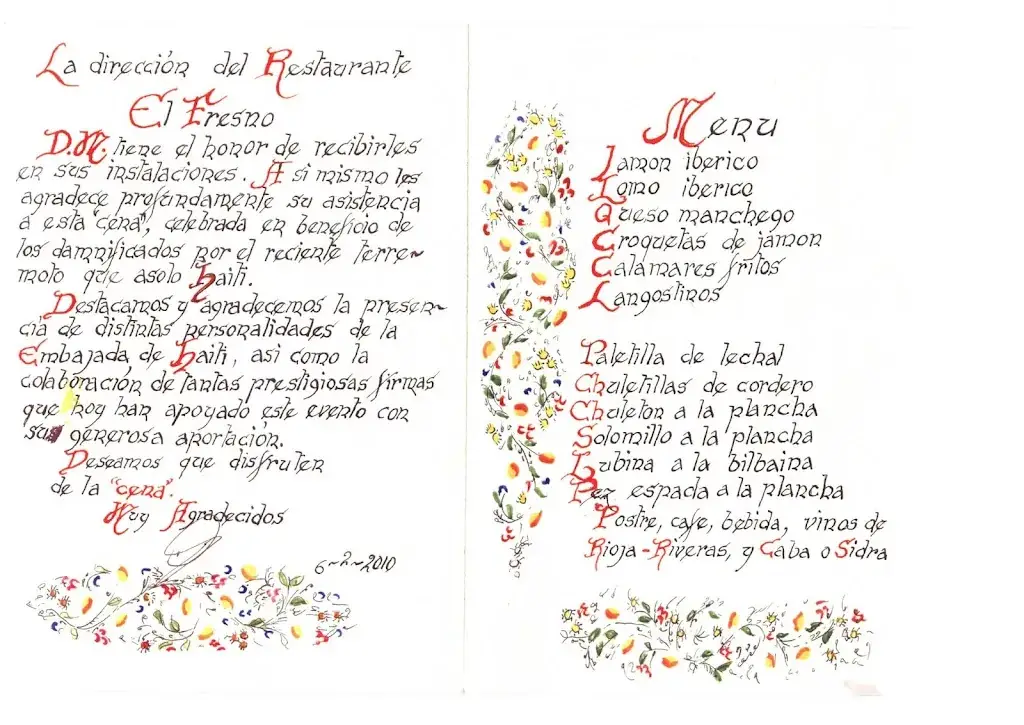 La dirección del Restaurante
El Fresno
D.M. tiene el honor de recibirles
en sus instalaciones. Asi mismo les
agradece profundamente su asistencia
a esta "cena", celebrada en beneficio de
los damnificados por el reciente terre~
moto que asolo haiti.
Destacamos y agradecemos la presen~
cia de distintas personalidades de la
Embajada de haiti, asi como la
colaboración de tantas prestigiosas firmas
que hoy han apoyado este evento con
sus generosa aportación.
Deseamos que disfruten
de la "cena".
Muy Agradecidos
6~2~2010
Menu
Jamon iberico
Lomo iberico
Queso manchego
Croquetas de jamon
Calamares fritos
Langostinos
Paletilla de lechal
Chuletillas de cordero
Chuleton a la plancha
Solomillo a la plancha
Lubina a la bilbaina
Pez espada a la plancha
Postre, cafe, bebida, vinos de
Rioja-Riveras, y Caba o Sidra